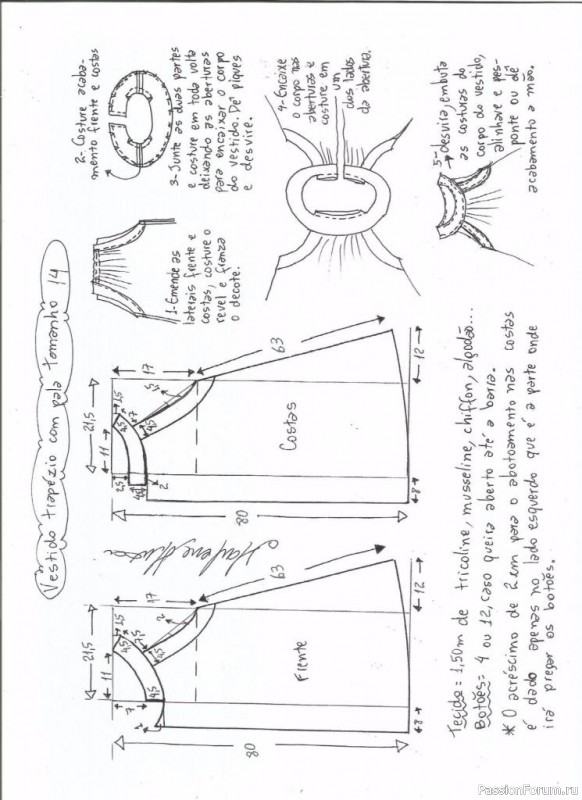 Vestido trapézio com pala tamanho 14
1-Emende as
laterais frente e
costas, costure o
revel e franza
o decote.
2- Costure acaba-
mento frente e costas
3- Junte as duas partes
e costure em toda volta
deixando as aberturas
para encaixar o corpo
do vestido. Dê piques
e desvire.
4-Encaixe
o corpo nas
aberturas e
costure em
um
dos lados
da abertura.
5-Desvira, embuta
as costuras do
corpo do vestido,
alinhave e pes-
ponte ou dê
acabamento a mão.
21,5
11
17
1,5
4,5
7,5
2
4,5
7
4,5
63
Frente
80
8
12
21,5
11
17
1,5
4,5
7
4,5
2,5
2
63
Costas
80
8
12
Tecido = 1,50m de tricoline, musseline, chiffon, algodão...
Botões = 4 ou 12, caso queira aberto até a barra.
* O acréscimo de 2 cm para o abotoamento nas costas
é dado apenas no lado esquerdo que é a parte onde
irá pregar os botões.
PassionForum.ru